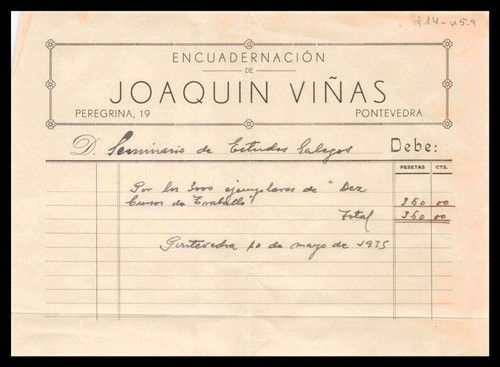 214-459
ENCUADERNACIÓN
DE
JOAQUIN VIÑAS
PEREGRINA, 19 PONTEVEDRA
D. Seminario de Estudos Galegos Debe:
PESETAS CTS.
Por los 3000 ejemplares de "Dez
Cursos de Traballo" 360 00
Total 360 00
Pontevedra 10 de mayo de 1935